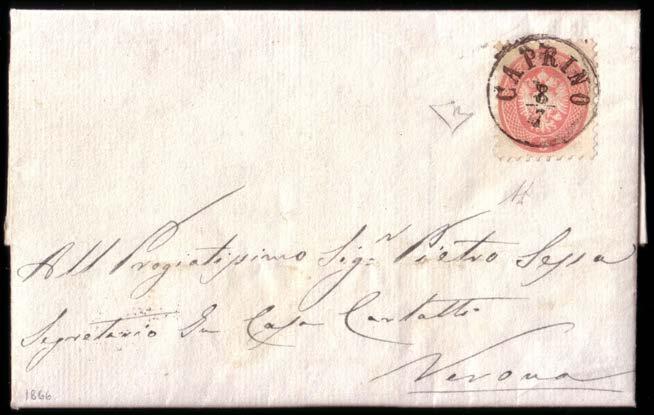 CAPRINO
8
7
All Pregiatissimo Sigr Pietro Sessa
Segretario In Casa Cartatti
Verona
1866